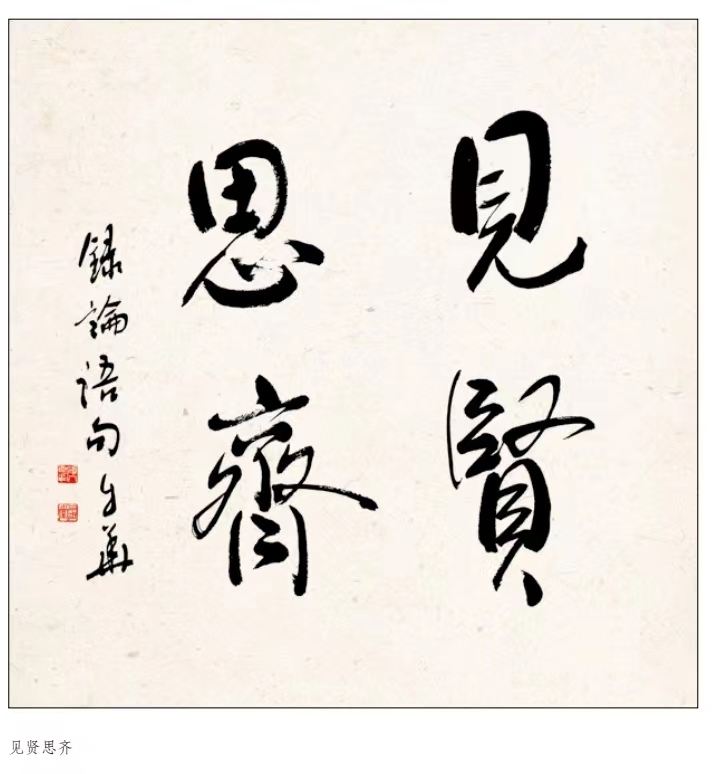 見賢
思齊
録論語句
见贤思齐